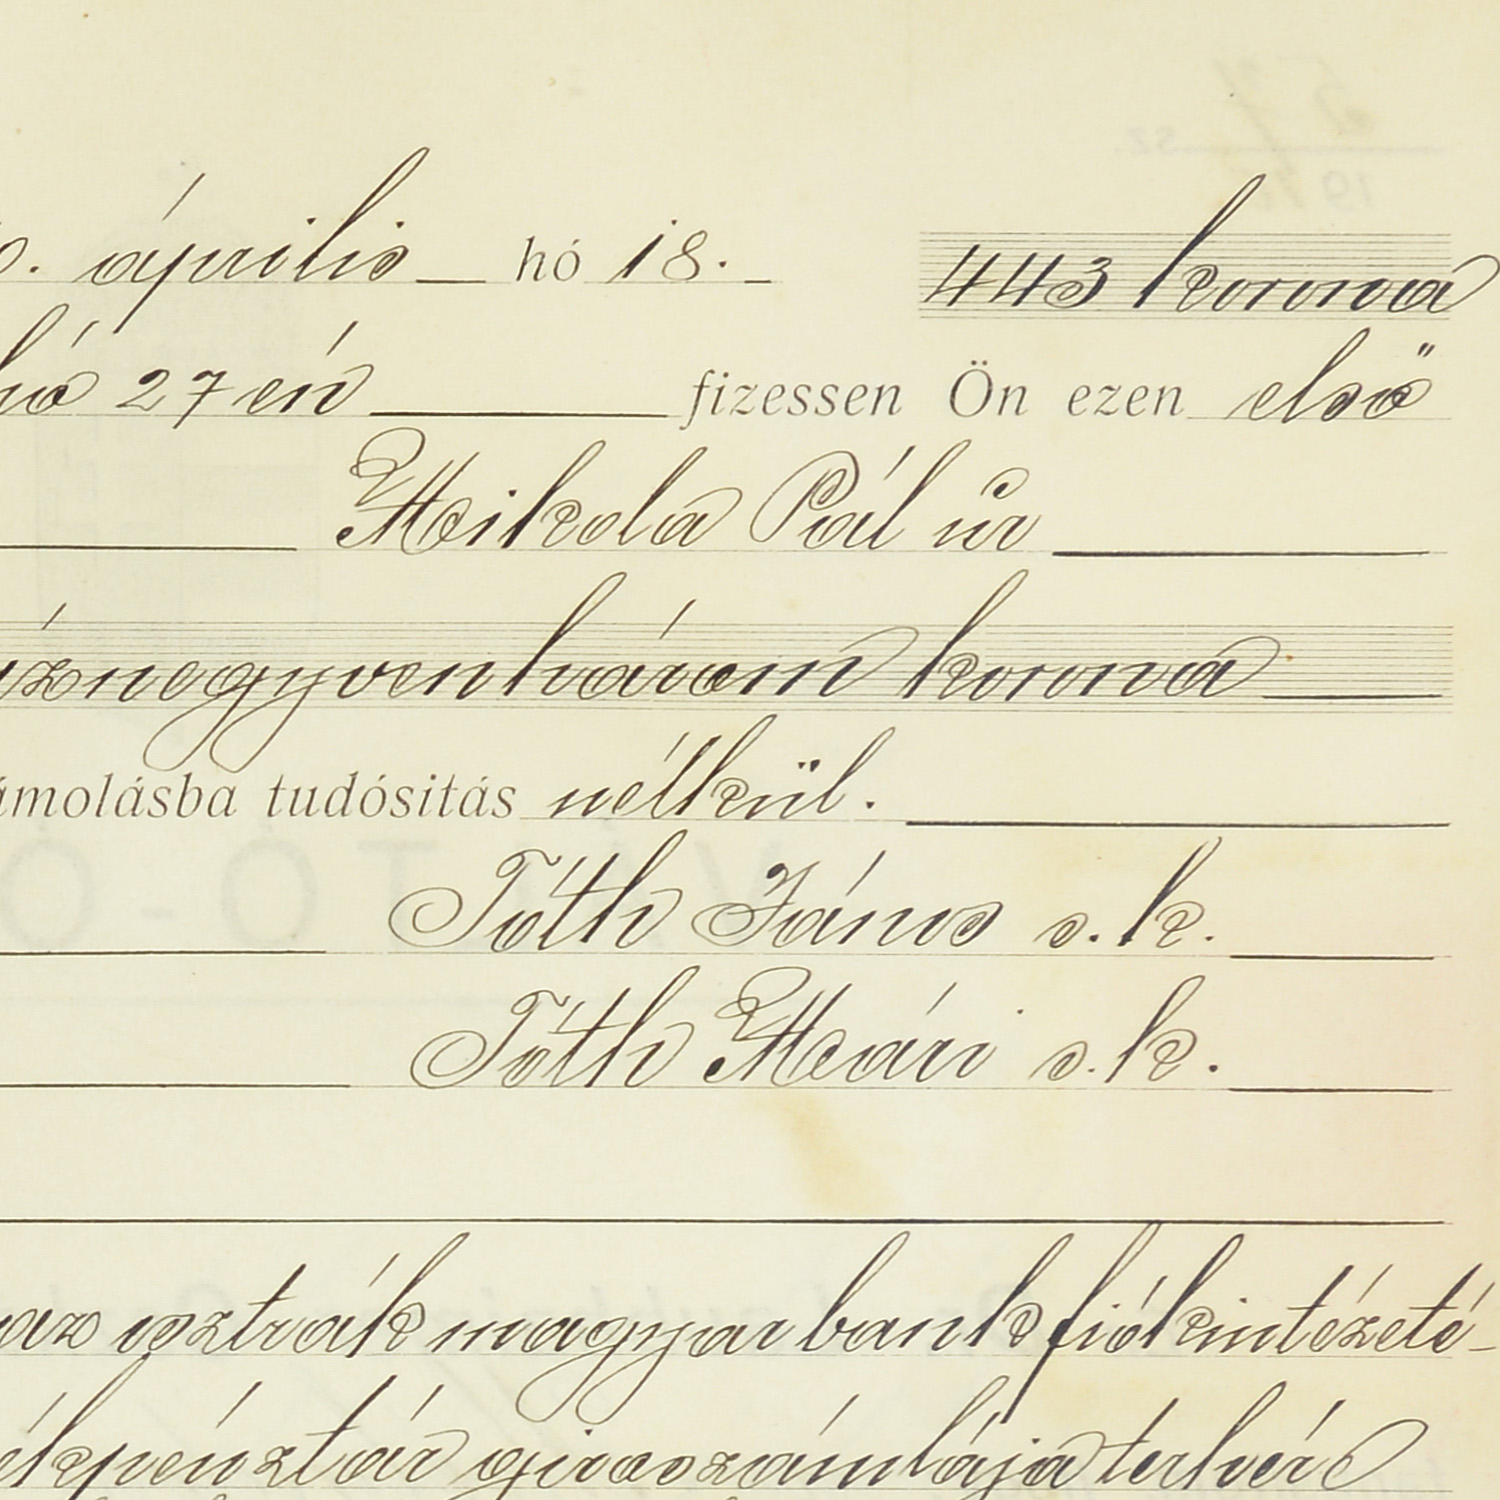 április hó 18. 443 korona
hó 27 én fizessen Ön ezen első
Mikola Pál úr
áznegyvenhárom korona
ámolásba tudósitás nélkül.
Tóth János s. k.
Tóth Mári s. k.
az osztrák magyar bank fiókintézeté-
ékpénztár giroszámlája terhére